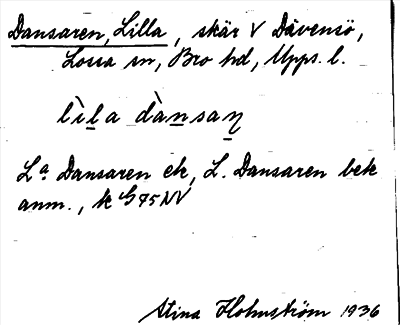 Dansaren, Lilla, skär V Dävensö,
Lossa sn, Bro hd, Upps. l.
lìḻa dàṉsaṉ
Lª Dansaren ek, L. Dansaren bek
anm., k G 75 NV
Stina Holmström 1936